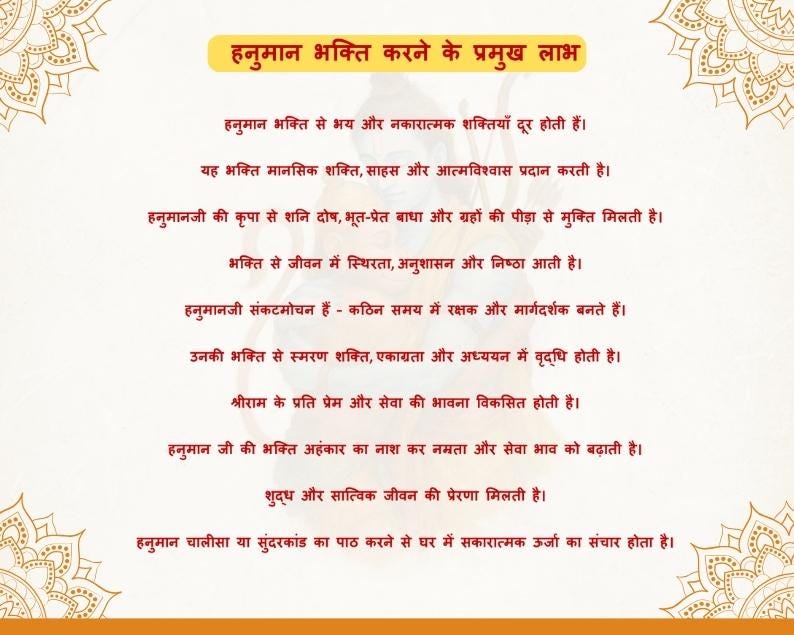 हनुमान भक्ति करने के प्रमुख लाभ
हनुमान भक्ति से भय और नकारात्मक शक्तियाँ दूर होती हैं।
यह भक्ति मानसिक शक्ति, साहस और आत्मविश्वास प्रदान करती है।
हनुमानजी की कृपा से शनि दोष, भूत-प्रेत बाधा और ग्रहों की पीड़ा से मुक्ति मिलती है।
भक्ति से जीवन में स्थिरता, अनुशासन और निष्ठा आती है।
हनुमानजी संकटमोचन हैं - कठिन समय में रक्षक और मार्गदर्शक बनते हैं।
उनकी भक्ति से स्मरण शक्ति, एकाग्रता और अध्ययन में वृद्धि होती है।
श्रीराम के प्रति प्रेम और सेवा की भावना विकसित होती है।
हनुमान जी की भक्ति अहंकार का नाश कर नम्रता और सेवा भाव को बढ़ाती है।
शुद्ध और सात्विक जीवन की प्रेरणा मिलती है।
हनुमान चालीसा या सुंदरकांड का पाठ करने से घर में सकारात्मक ऊर्जा का संचार होता है।